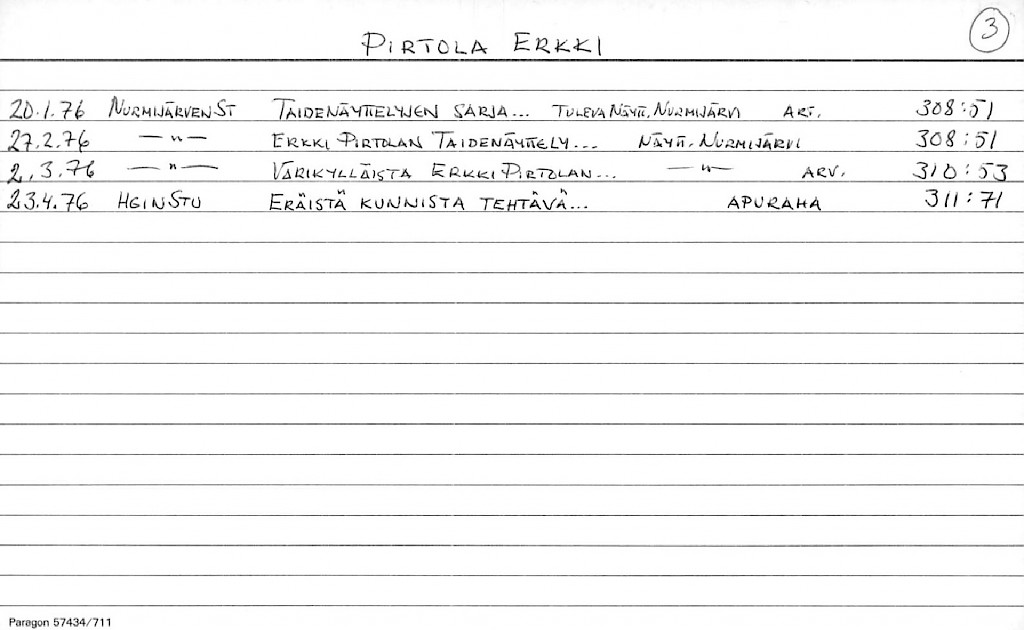 3
PIRTOLA ERKKI
20.1.76 NURMIJÄRVEN ST TAIDENÄYTTELYJEN SARJA... TULEVA NÄYTT. NURMIJÄRVI ART. 308:51
27.2.76 —"— ERKKI PIRTOLAN TAIDENÄYTTELY... NÄYTT. NURMIJÄRVI 308:51
2.3.76 —"— VÄRIKYLLÄISTÄ ERKKI PIRTOLAN... —"— ARV. 310:53
23.4.76 HGINSTU ERÄISTÄ KUNNISTA TEHTÄVÄ... APURAHA 311:71
Paragon 57434/711